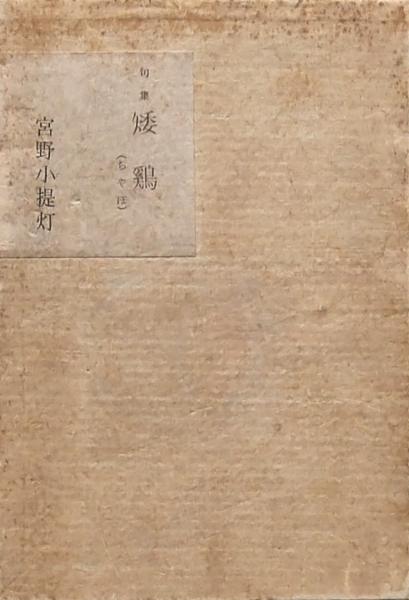 句集
矮鶏
(ちやぼ)
宮野小提灯